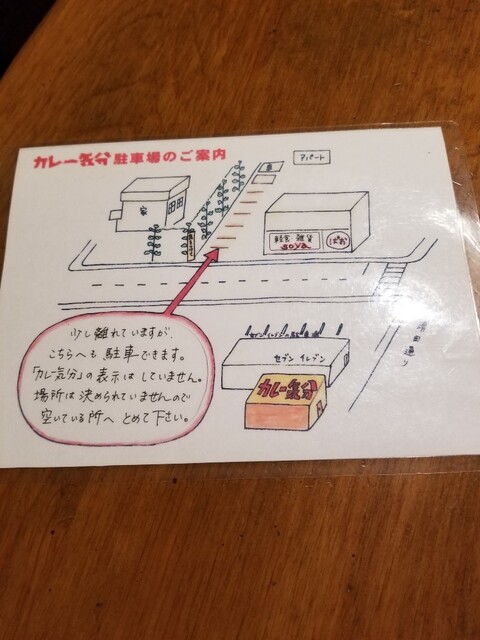 カレー気分 駐車場のご案内
アパート
家
軽食 雑貨
soya
少し離れていますが、
こちらへも 駐車できます。
「カレー気分」の表示は していません。
場所は 決められていませんので
空いている所へ とめて下さい。
セブンイレブン
カレー気分